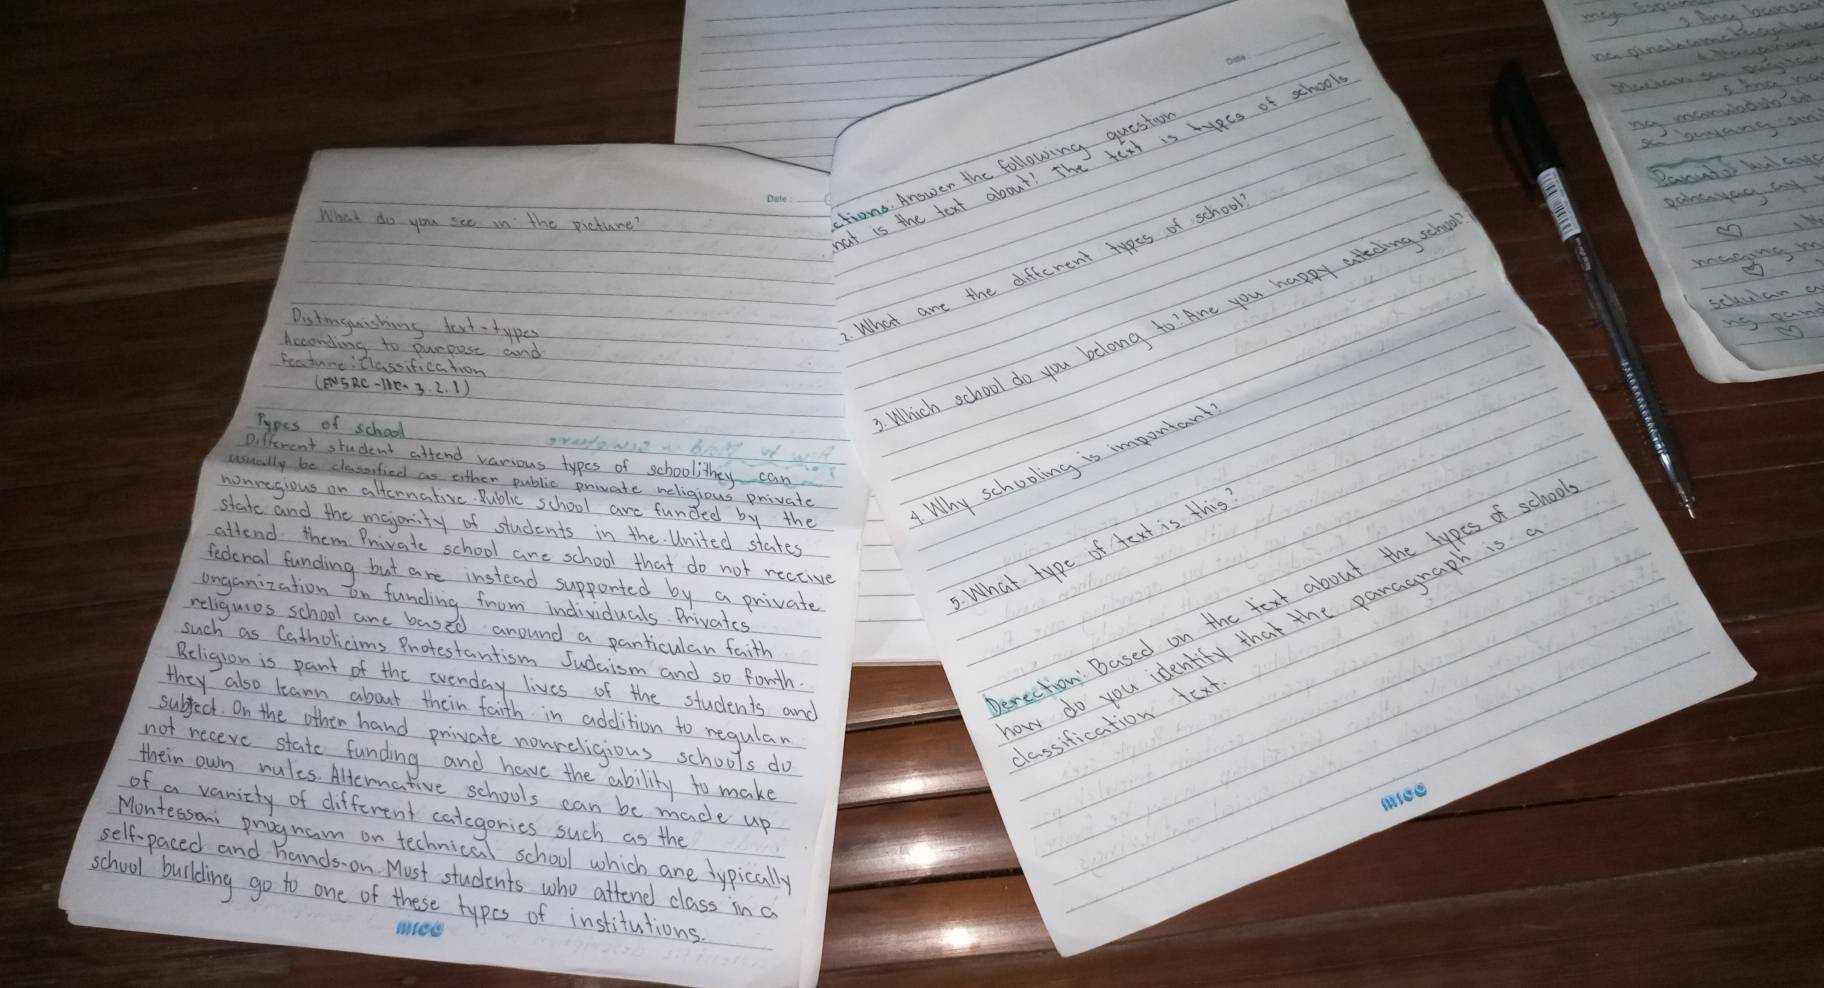 Date:
What do you see in the picture?
Distinguishing text-types
According to purpose and
feature: Classification
(EN5RC-IIc-3.2.1)
Types of school
Different student attend various types of school; they can
usually be classified as either public private religious private
nonregious or alternative. Public school are funded by the
state and the majority of students in the United states
attend them. Private school are school that do not receive
federal funding but are instead supported by a private
organization or funding from individuals. Privates
religuios school are based around a particular faith
such as Catholicims Protestantism Judaism and so forth.
Religion is part of the everday lives of the students and
they also learn about their faith in addition to regular
subject. On the other hand private nonreligious schools do
not receve state funding and have the ability to make
their own rules. Alternative schools can be made up
of a variety of different categories such as the
Montessori program or technical school which are typically
self-paced and hands-on. Most students who attend class in a
school building go to one of these types of institutions.
mico
Date
ctions: Answer the following question
hat is the text about? The text is types of schools
2. What are the different types of school?
3. Which school do you belong to? Are you happy attecling school?
4. Why schooling is important?
5. What type of text is this?
Derection: Based on the text about the types of schools
how do you identify that the paragraph is a
classification text.
mico
3. Ang bansa
ng marubdob at
sa bayang
Panuto: